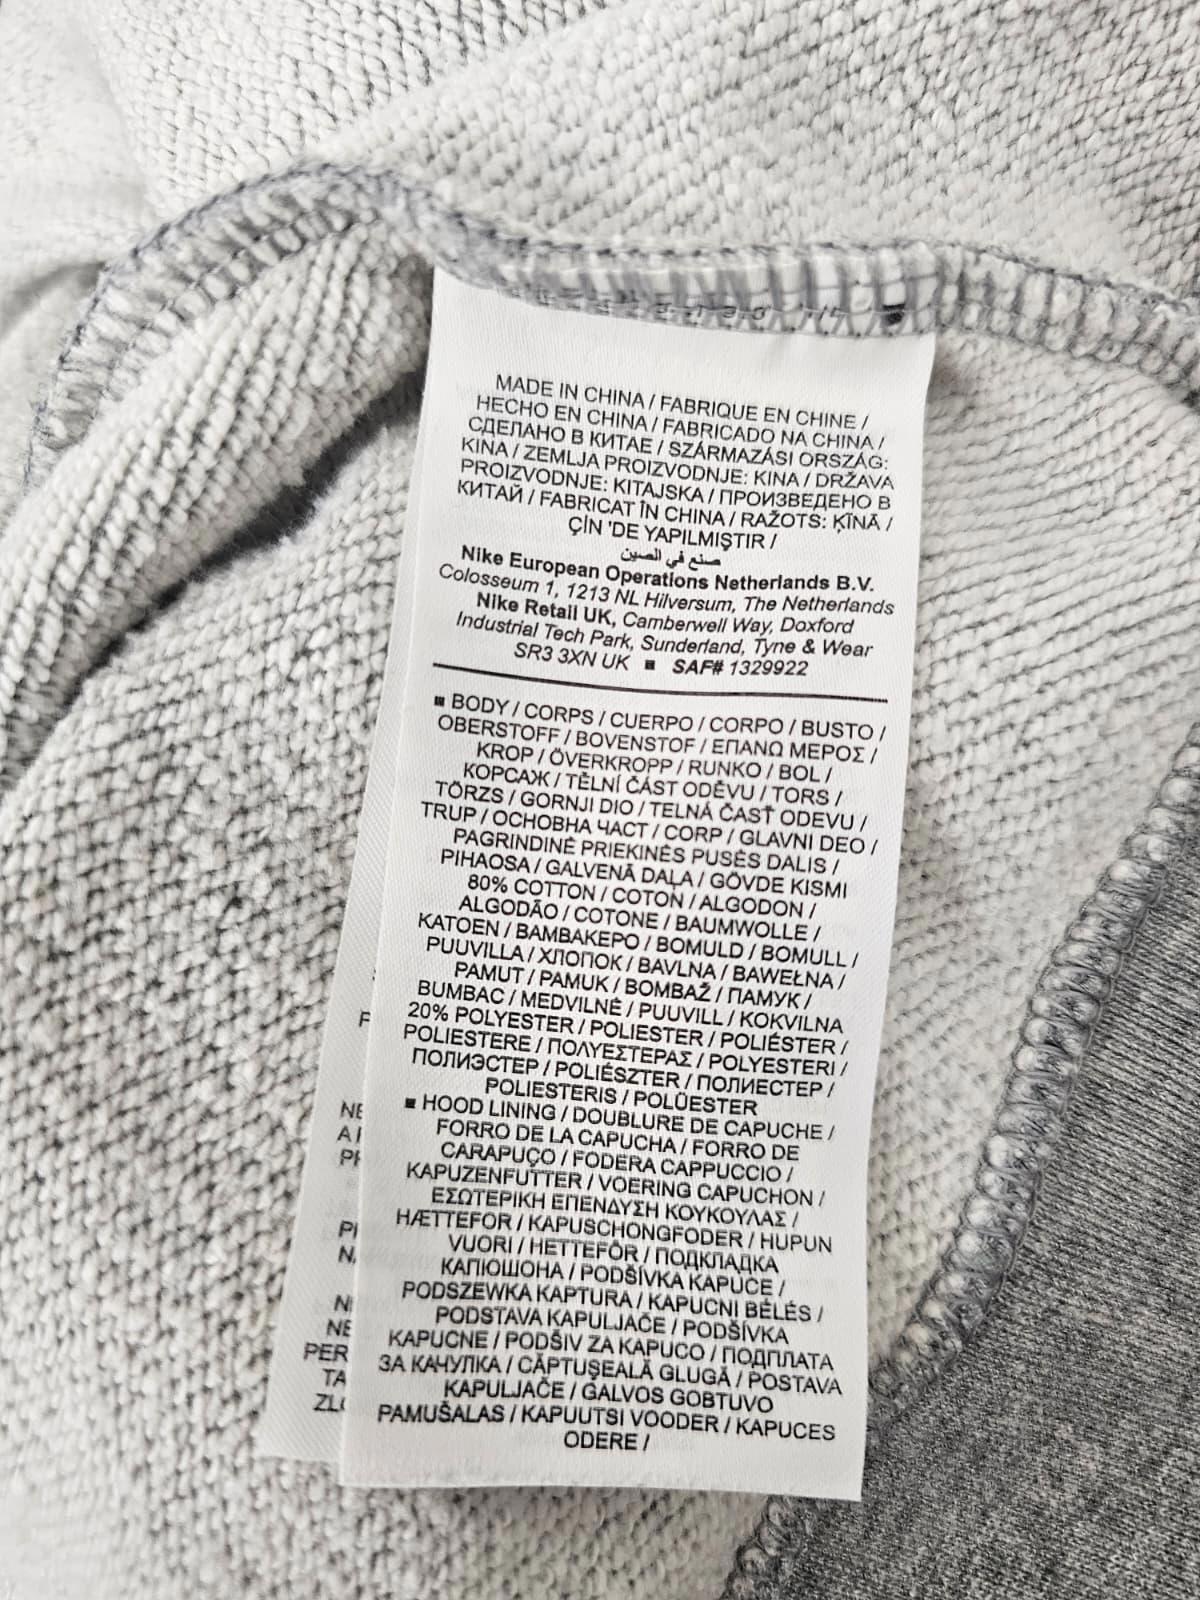 MADE IN CHINA / FABRIQUE EN CHINE /
HECHO EN CHINA / FABRICADO NA CHINA /
СДЕЛАНО В КИТАЕ / SZÁRMAZÁSI ORSZÁG:
KINA / ZEMLJA PROIZVODNJE: KINA / DRŽAVA
PROIZVODNJE: KITAJSKA / ПРОИЗВЕДЕНО В
КИТАЙ / FABRICAT ÎN CHINA / RAŽOTS: ĶĪNĀ /
ÇİN 'DE YAPILMIŞTIR /
صنع في الصين
Nike European Operations Netherlands B.V.
Colosseum 1, 1213 NL Hilversum, The Netherlands
Nike Retail UK, Camberwell Way, Doxford
Industrial Tech Park, Sunderland, Tyne & Wear
SR3 3XN UK ■ SAF# 1329922
■ BODY / CORPS / CUERPO / CORPO / BUSTO /
OBERSTOFF / BOVENSTOF / ΕΠΑΝΩ ΜΕΡΟΣ /
KROP / ÖVERKROPP / RUNKO / BOL /
КОРСАЖ / TĚLNÍ ČÁST ODĚVU / TORS /
TÖRZS / GORNJI DIO / TELNÁ ČASŤ ODEVU /
TRUP / ОСНОВНА ЧАСТ / CORP / GLAVNI DEO /
PAGRINDINĖ PRIEKINĖS PUSĖS DALIS /
PIHAOSA / GALVENĀ DAĻA / GÖVDE KISMI
80% COTTON / COTON / ALGODON /
ALGODÃO / COTONE / BAUMWOLLE /
KATOEN / ΒΑΜΒΑΚΕΡΟ / BOMULD / BOMULL /
PUUVILLA / ХЛОПОК / BAVLNA / BAWEŁNA /
PAMUT / PAMUK / BOMBAŽ / ПАМУК /
BUMBAC / MEDVILNĖ / PUUVILL / KOKVILNA
20% POLYESTER / POLIESTER / POLIÉSTER /
POLIESTERE / ΠΟΛΥΕΣΤΕΡΑΣ / POLYESTERI /
ПОЛИЭСТЕР / POLIÉSZTER / ПОЛИЕСТЕР /
POLIESTERIS / POLÜESTER
■ HOOD LINING / DOUBLURE DE CAPUCHE /
FORRO DE LA CAPUCHA / FORRO DE
CARAPUÇO / FODERA CAPPUCCIO /
KAPUZENFUTTER / VOERING CAPUCHON /
ΕΣΩΤΕΡΙΚΗ ΕΠΕΝΔΥΣΗ ΚΟΥΚΟΥΛΑΣ /
HÆTTEFOR / KAPUSCHONGFODER / HUPUN
VUORI / HETTEFÔR / ПОДКЛАДКА
КАПЮШОНА / PODŠÍVKA KAPUCE /
PODSZEWKA KAPTURA / KAPUCNI BÉLÉS /
PODSTAVA KAPULJAČE / PODŠÍVKA
KAPUCNE / PODŠIV ZA KAPUCO / ПОДПЛАТА
ЗА КАЧУЛКА / CĂPTUŞEALĂ GLUGĂ / POSTAVA
KAPULJAČE / GALVOS GOBTUVO
PAMUŠALAS / KAPUUTSI VOODER / KAPUCES
ODERE /